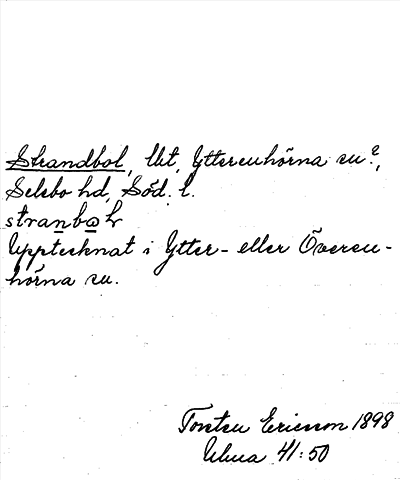 Strandbol, lht, Ytterenhörna sn?,
Selebo hd, Söd. l.
Upptecknat i Ytter- eller Överen-
hörna sn.
Torsten Ericsson 1898
Ulma 41:50